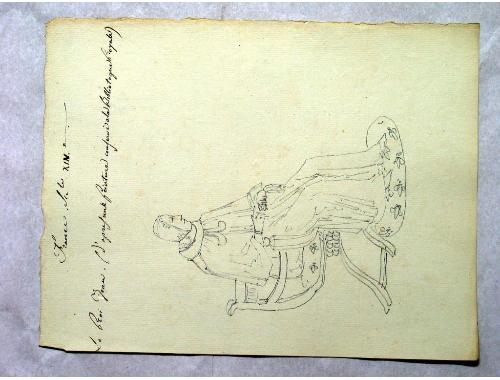 France S.le XIV.e
Le Roi Jean. (d'après une Peinture conservée à la Bibliothèque Royale)